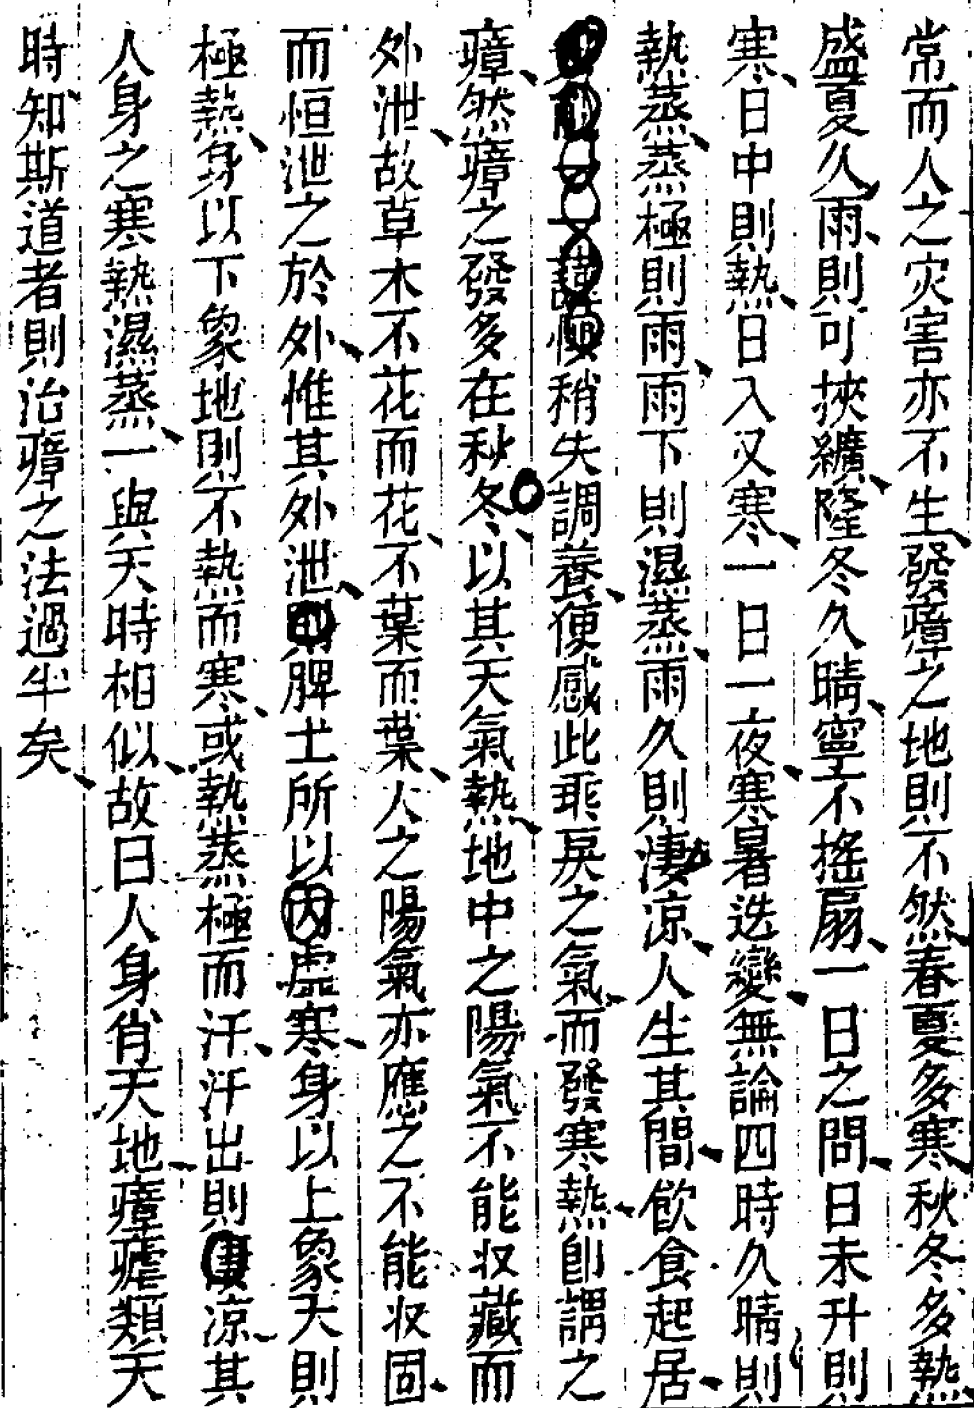 常而人之灾害亦不生發瘴之地則不然春夏多寒秋冬多熱
盛夏久雨則可挾纊隆冬久晴寧不搖扇一日之間日未升則
寒日中則熱日入又寒一日一夜寒暑迭變無論四時久晴則
熱蒸蒸極則雨雨下則濕蒸雨久則淒凉人生其間飲食起居
稍失調養便感此乖戾之氣而發寒熱卽謂之
瘴然瘴之發多在秋冬以其天氣熱地中之陽氣不能収藏而
外泄故草木不花而花不葉而葉人之陽氣亦應之不能収固
而恒泄之於外惟其外泄則脾土所以因虛寒身以上象天則
極熱身以下象地則不熱而寒或熱蒸極而汗汗出則凄凉其
人身之寒熱濕蒸一與天時相似故曰人身肖天地瘴瘧類天
時知斯道者則治瘴之法過半矣